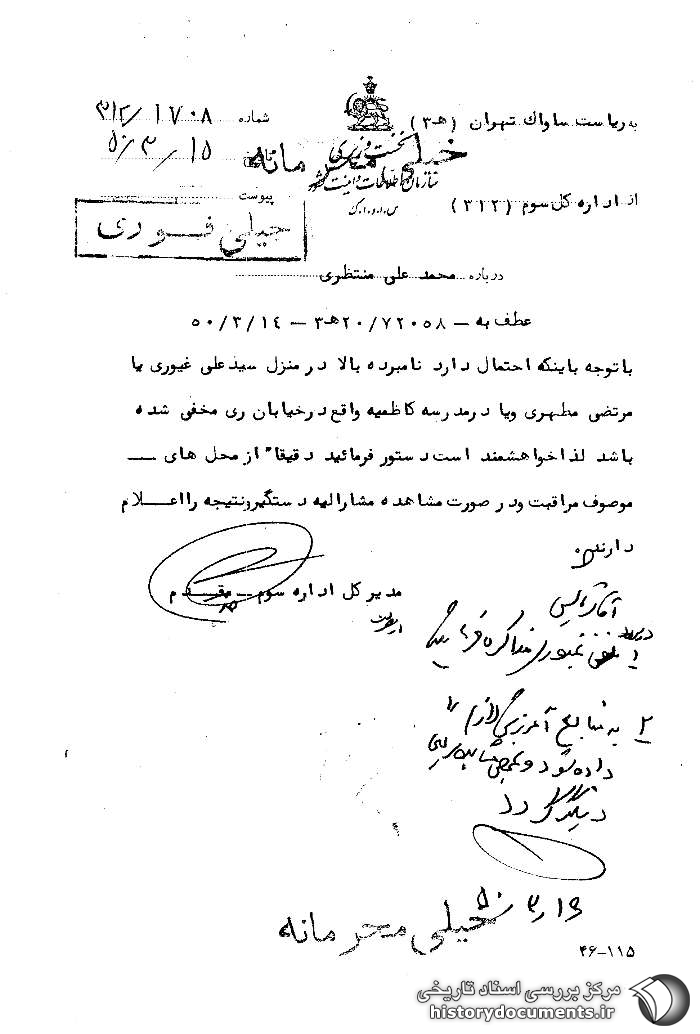 به ریاست ساواک تهران (ه‍۳)
شماره ۳۱۲/۱۷۰۸
نخست وزیری
۵۰/۳/۱۵
خیلی محرمانه
سازمان اطلاعات و امنیت کشور
س.ا.و.ا.ک
از اداره کل سوم (۳۱۲)
پیوست
خیلی فوری
درباره محمد علی منتظری
عطف به – ۲۰/۷۲۰۵۸ه‍۳ – ۵۰/۳/۱۴
با توجه باینکه احتمال دارد نامبرده بالا در منزل سید علی غیوری یا
مرتضی مطهری ویا در مدرسه کاظمیه واقع درخیابان ری مخفی شده
باشد لذا خواهشمند است دستور فرمائید دقیقا" از محل های
موصوف مراقبت ودر صورت مشاهده مشارالیه دستگیرونتیجه رااعلام
دارند.
مدیر کل اداره سوم – مقدم
۱
غیوری مذاکره فرمایید
۲ به منابع آموزش لازم
داده شود و
دستگیر گردد
۵۰/۳/۱۶
خیلی محرمانه
۴۶-۱۱۵
مرکز بررسی اسناد تاریخی
historydocuments.ir